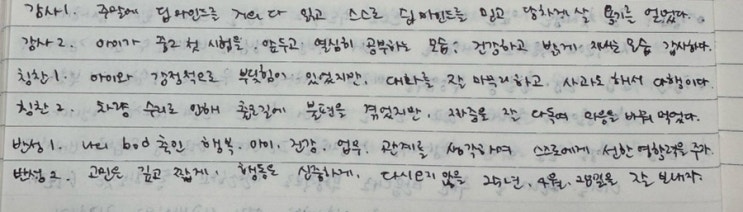 감사1. 주말에 딥마인드를 거의 다 읽고 스스로 딥마인드를 믿고 당차게 살 용기를 얻었다.
감사2. 아이가 중2 첫 시험을 앞두고 열심히 공부하는 모습, 건강하고 밝게 지내는 모습 감사하다.
칭찬1. 아이와 감정적으로 부딪힘이 있었지만, 대화를 잘 마무리하고, 사과도 해서 다행이다.
칭찬2. 차량 수리로 인해 출근길에 불편을 겪었지만, 자중을 잘 다독여 마음을 바꿔 먹었다.
반성1. 나의 bod 축인 행복. 아이. 건강. 업무. 관계를 생각하며 스스로에게 선한 영향력을 주자.
반성2. 고민은 깊고 짧게, 행동은 신중하게, 다시 오지 않을 25년, 4월, 28일을 잘 보내자.